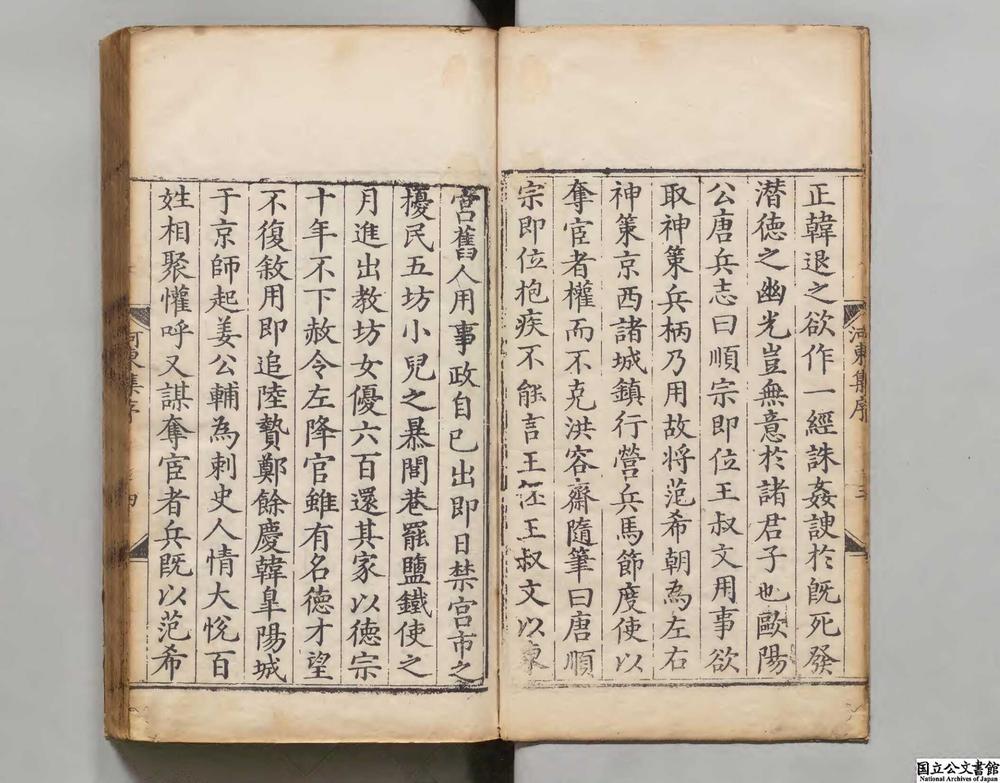 正韓退之欲作一經誅姦諛於既死發
潛德之幽光豈無意於諸君子也歐陽
公唐兵志曰順宗即位王叔文用事欲
取神策兵柄乃用故将范希朝為左右
神策京西諸城鎮行營兵馬節度使以
奪宦者權而不克洪容齋隨筆曰唐順
宗即位抱疾不能言王伾王叔文以東
宮舊人用事政自己出即日禁宮市之
擾民五坊小兒之暴閭巷罷鹽鐵使之
月進出教坊女優六百還其家以德宗
十年不下赦令左降官雖有名德才望
不復敘用即追陸贄鄭餘慶韓皐陽城
于京師起姜公輔為刺史人情大悅百
姓相聚懽呼又謀奪宦者兵既以范希
河東集序
三
河東集序
四
国立公文書館
National Archives of Japan